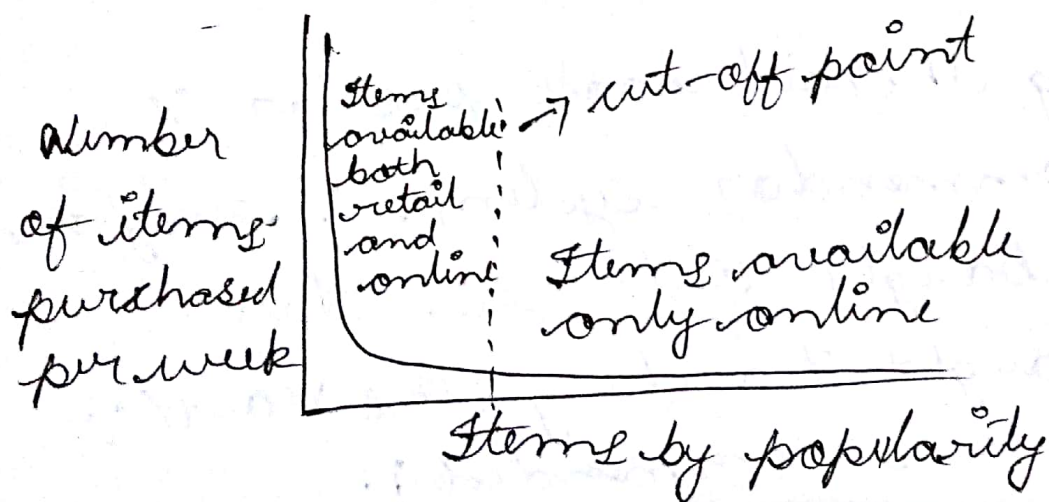 Number
of items
purchased
per week
Items
available
both
retail
and
online
cut-off point
Items available
only online
Items by popularity